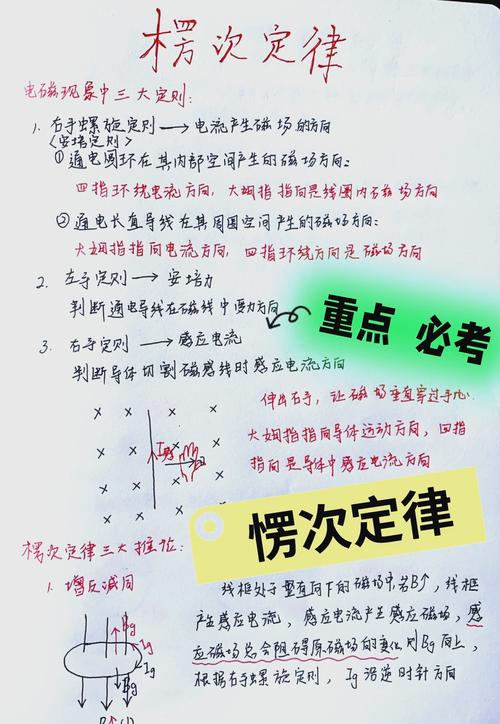 楞次定律
电磁现象中三大定则:
1. 右手螺旋定则 → 电流产生磁场的方向
<安培定则>
①通电圆环在其内部空间产生的磁场方向:
四指环绕电流方向, 大姆指指向是线圈内磁场方向
②通电长直导线在其周围空间产生的磁场方向:
大姆指指向电流方向, 四指环绕方向是磁场方向
2. 左手定则 → 安培力
判断通电导线在磁线中受力方向
重点 必考
3. 右手定则 → 感应电流
判断导体切割磁感线时感应电流方向
伸出右手, 让磁场垂直穿过手心,
大姆指指向导体运动方向, 四指
指向是导体中感应电流方向
× × × ×
× × ×
Ig
× × ×
× × ×
愣次定律
楞次定律三大推论:
1. 增反减同
线框处于竖直向下的磁场中, 若B↑, 线框
产生感应电流, 感应电流产生感应磁场, 感
应磁场总会阻碍原磁场的变化 则Bg向上,
根据右手螺旋定则, Ig沿逆时针方向
Bg
Ig
Ig
Bg